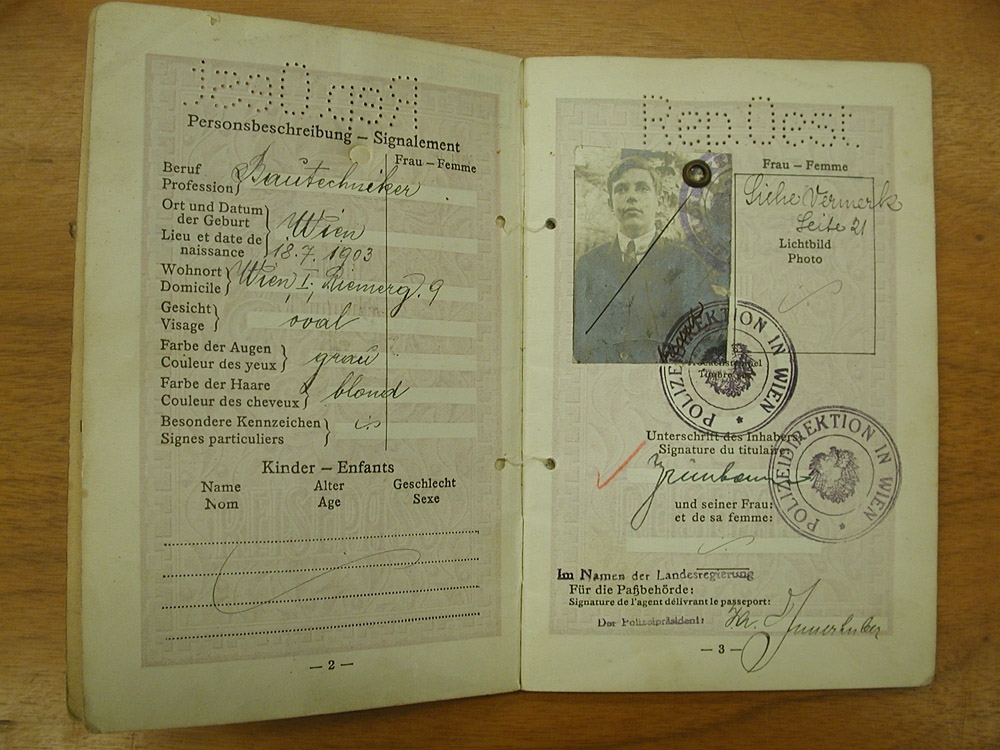 Rep. Öest.
Personsbeschreibung – Signalement
Frau – Femme
Beruf
Profession
Bautechniker
Ort und Datum
der Geburt
Lieu et date de
naissance
Wien
18.7.1903
Wohnort
Domicile
Wien, I., Riemerg. 9
Gesicht
Visage
oval
Farbe der Augen
Couleur des yeux
grau
Farbe der Haare
Couleur des cheveux
blond
Besondere Kennzeichen
Signes particuliers
Kinder – Enfants
Name Alter Geschlecht
Nom Age Sexe
— 2 —
Rep. Öest.
Frau – Femme
Siehe Vermerk
Seite 21
Lichtbild
Photo
POLIZEIDIREKTION IN WIEN
POLIZEIDIREKTION IN WIEN
Unterschrift des Inhabers
Signature du titulaire
Grünbaum
und seiner Frau:
et de sa femme:
Im Namen der Landesregierung
Für die Paßbehörde:
Signature de l'agent délivrant le passeport:
Der Polizeipräsident:
— 3 —